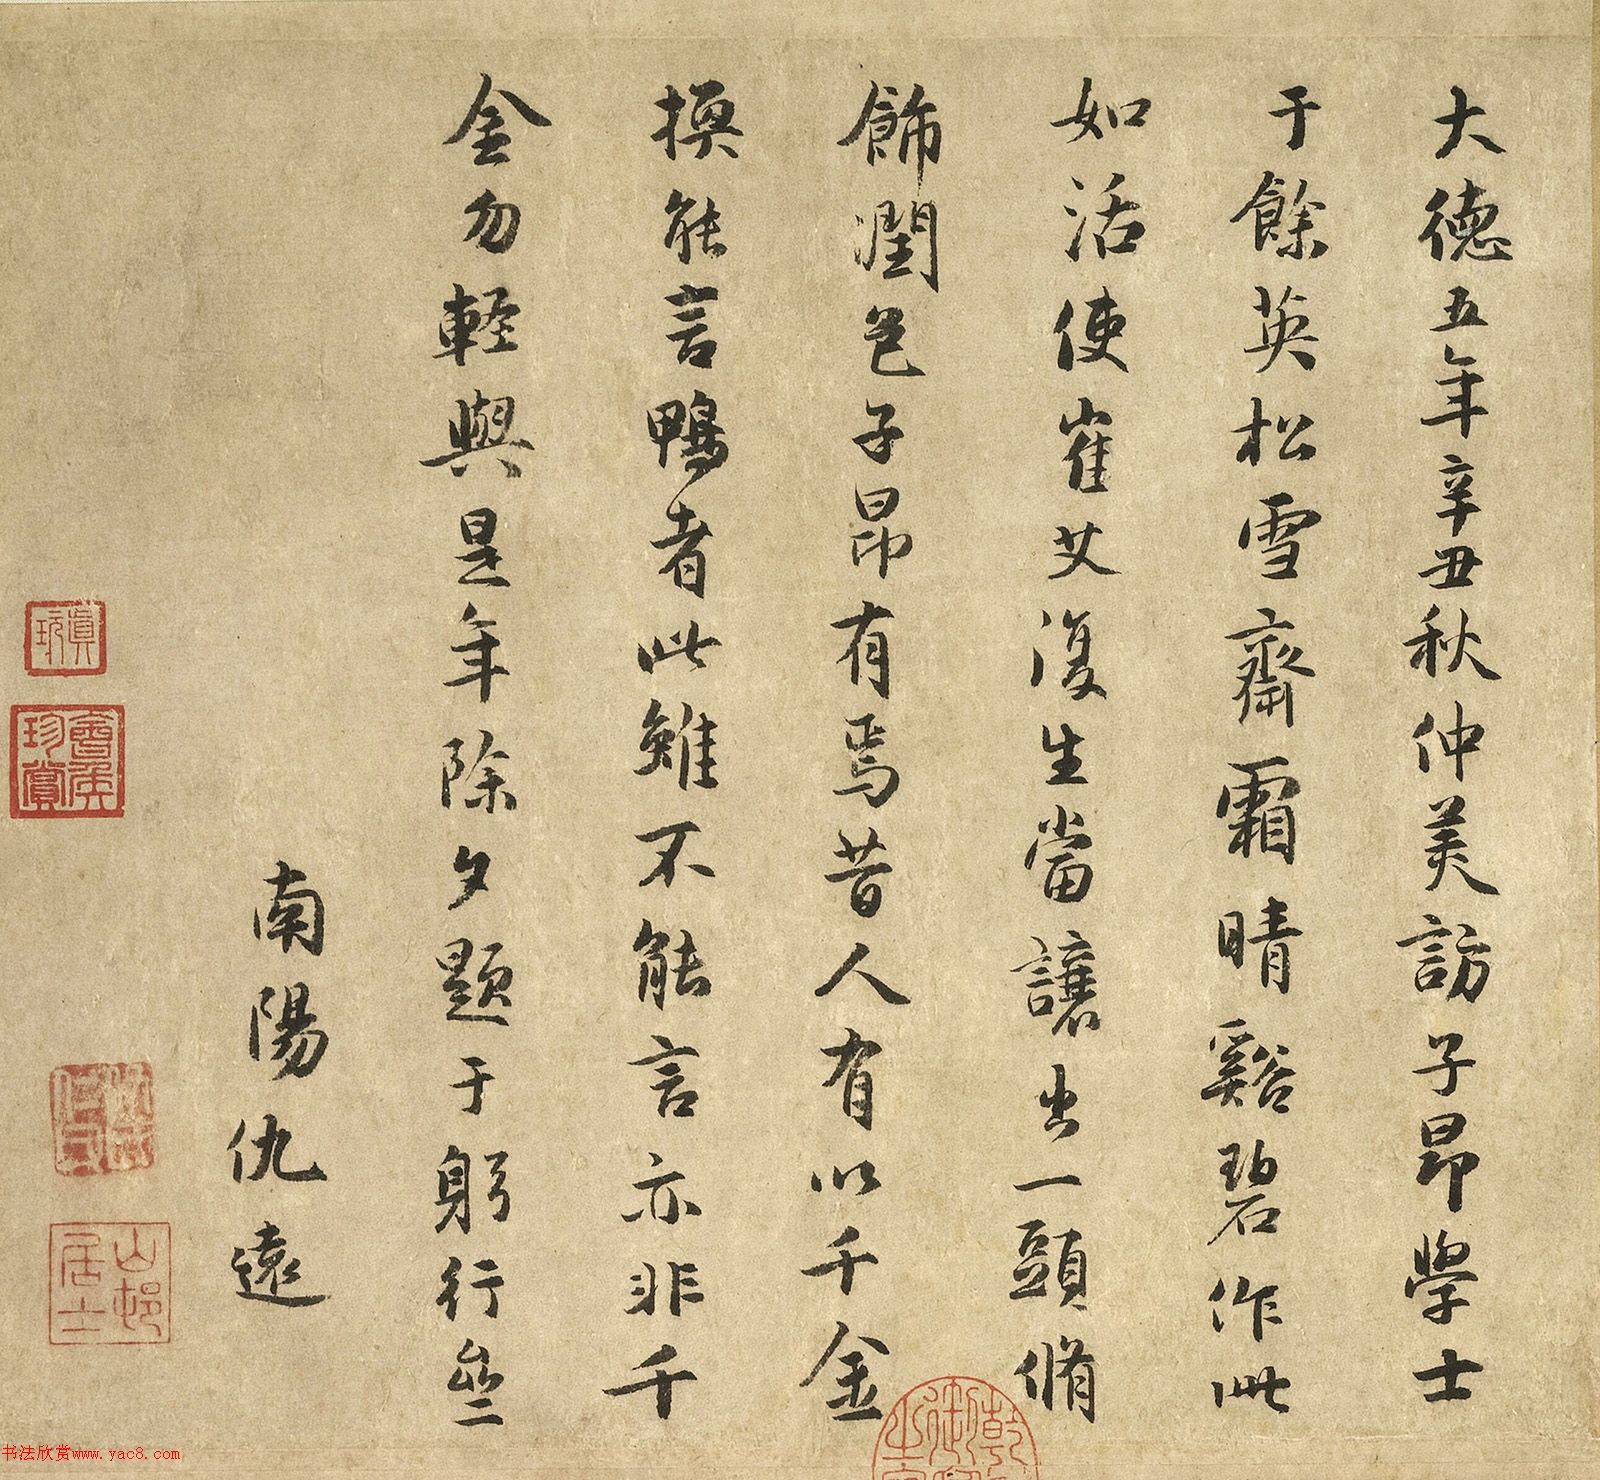 大德五年辛丑秋仲美訪子昂學士
于餘英松雪齋霜晴谿碧作此
如活使崔艾復生當讓出一頭脩
飾潤色子昂有焉昔人有以千金
換能言鴨者此雖不能言亦非千
金勿輕與是年除夕題于躬行亝
南陽仇遠
會侯珍賞
山邨居士
书法欣赏www.yac8.com